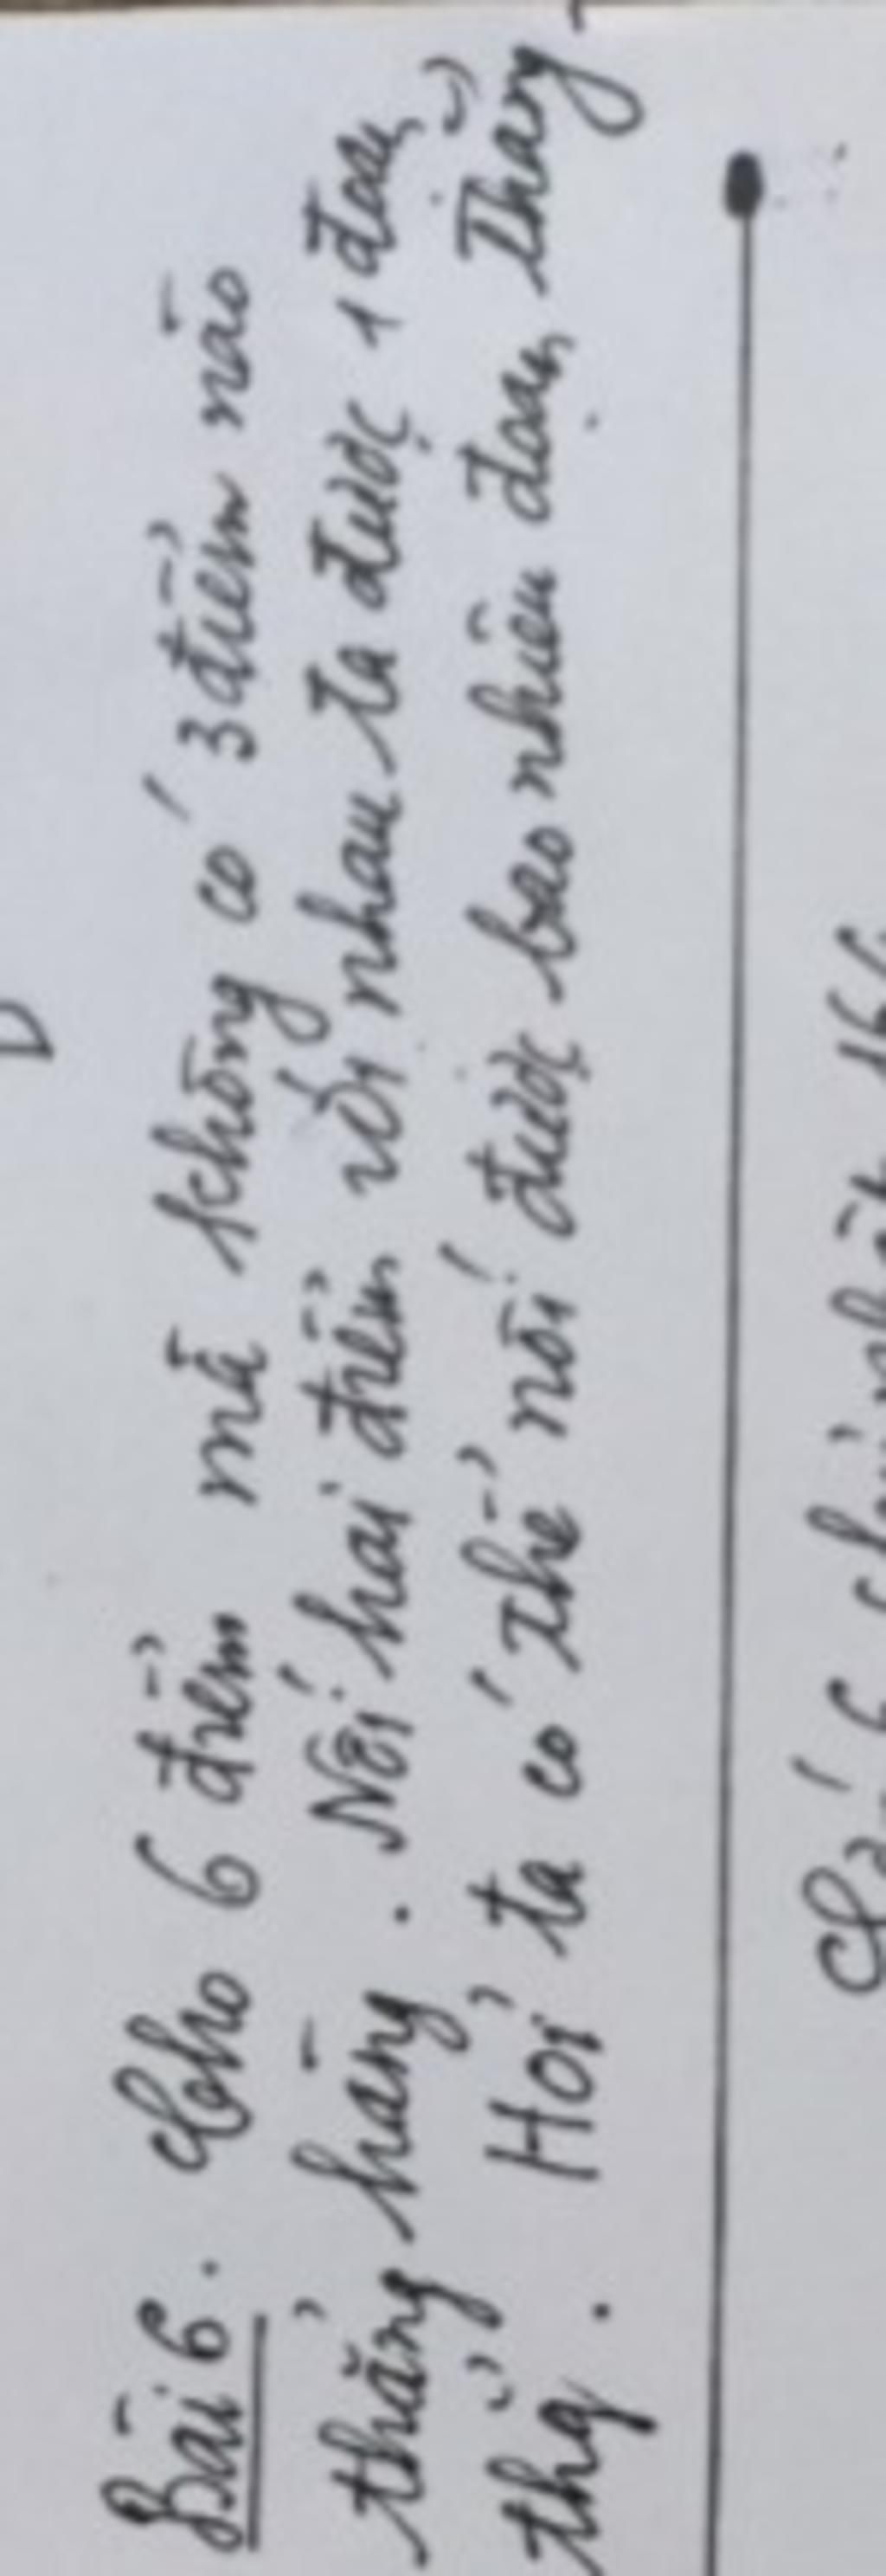 Bài 6. Cho 6 điểm mà không có 3 điểm nào
thẳng hàng. Nối hai điểm với nhau ta được 1 đoạn
thẳng. Hỏi ta có thể nối được bao nhiêu đoạn thẳng